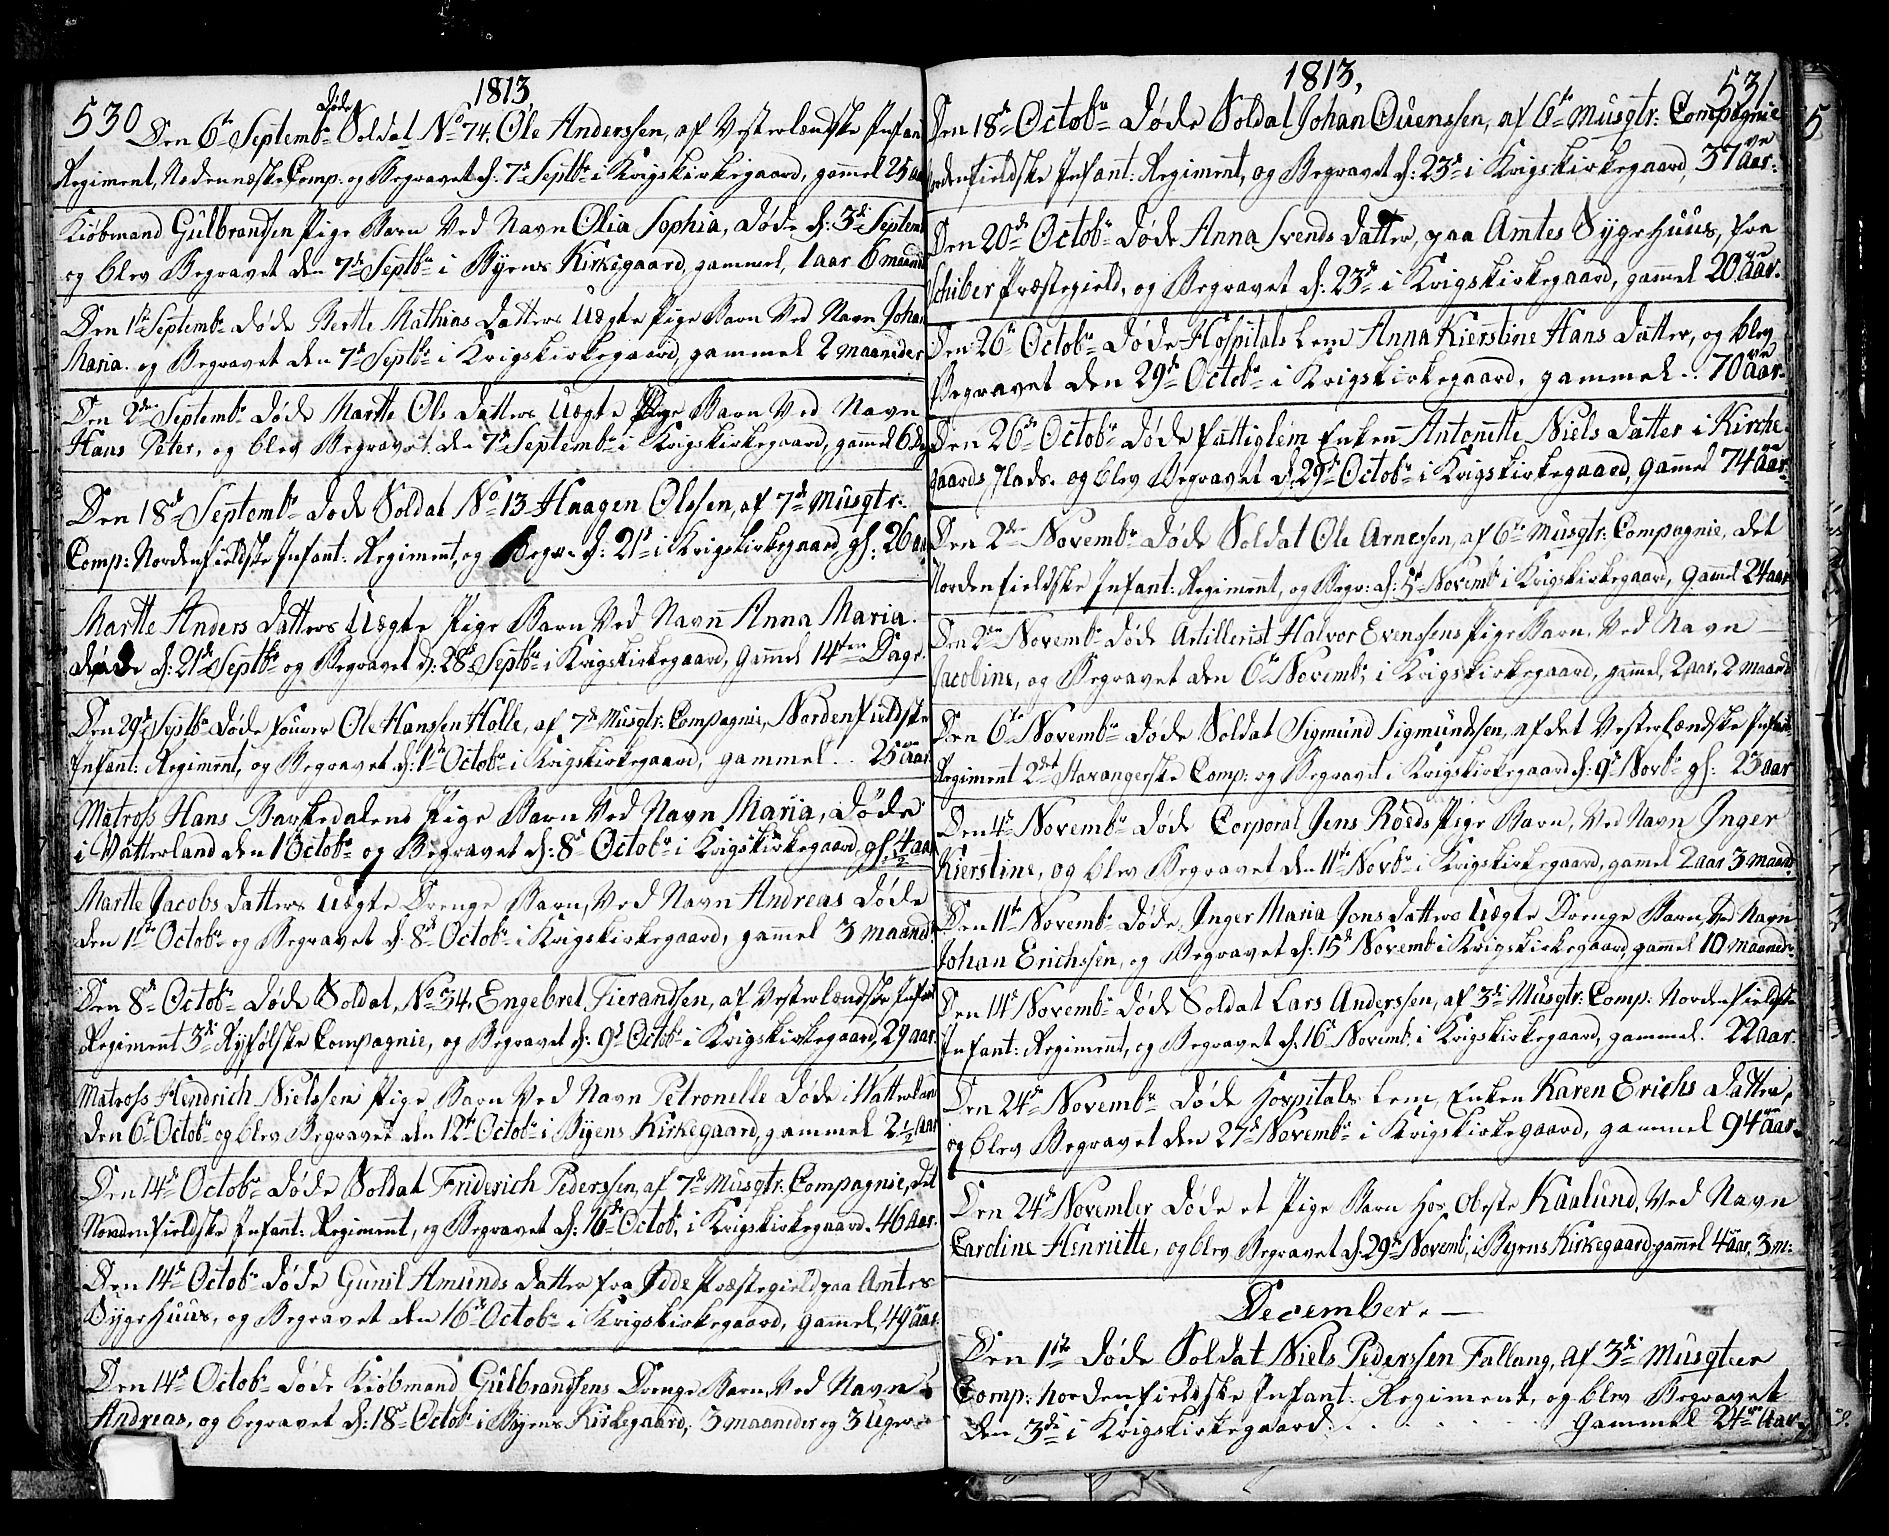 1813
530 Den 6te Septembr Døde Soldat No 74. Ole Anderssen, af Vesterlændske Infant
Regiment, Nedennæske Comp. og Begravet d: 7de Septbr i Krigskirkegaard, gammel 25 aar
Kiöbmand Gulbrandsen Pige Barn Ved Navn Olia Sophia, døde d: 3di Septemb
og blev Begravet den 7de Septbr i Byens Kirkegaard, gammel, 1 aar 6 maaned
Den 1ste Septembr døde Berthe Mathias Datters Uægte Pige Barn Ved Navn Joha
Maria. og Begravet den 7de Septbr i Krigskirkegaard, gammel 2 maaneder
Den 2den Septembr døde Marthe Ols Datters Uægte Pige Barn Ved Navn
Hans Peter, og blev Begravet den 7de Septembr i Krigskirkegaard, gammel 6 Dag
Den 18de Septembr døde Soldat No 13 Haagen Olssen, af 7de Musqtr:
Comp: Nordenfieldske Infant: Regiment, og Begr: d: 21de i Krigskirkegaard, gl: 26 aar
Marthe Anders Datters Uægte Pige Barn Ved Navn Anna Maria.
døde d: 21de Septbr og Begravet d: 28de Septbr i Krigskirkegaard, Gammel 14ten Dage.
Den 29de Septbr døde Fourer Ole Hanssen Holle, af 7de Musqtr: Compagnie, Nordenfieldske
Infant: Regiment, og Begravet d: 1te Octobr i Krigskirkegaard, gammel . . 25 aar
Matross Hans Barkedalens Pige Barn Ved Navn Maria, døde
i Vatterland den 1 Octobr og Begravet d: 8de Octobr i Krigskirkegaard, gl: 4 1/2 aar
Marthe Jacobs Datters Uægte Drenge Barn, Ved Navn Andreas døde
den 1ste Octobr og Begravet d: 8de Octobr i Krigskirkegaard, gammel 3 maand
Den 8de Octobr døde Soldat, No 34, Engebret Tierandsen, af Vesterlændske Infant
Regiment 3di Ryfølske Compagnie, og Begravet d: 9de Octobr i Krigskirkegaard, 29 aar.
Matross Hendrich Nielssen Pige Barn Ved Navn Petronelle døde i Vatterland
den 6te Octobr og blev Begravet den 12te Octobr i Byens Kirkegaard, gammel 2 1/2 Aar
Den 14de Octobr døde Soldat Friderich Pederssen, af 7de Musqtr: Compagnie, det
Nordenfieldske Infant: Regiment, og Begravet d: 16de Octobr i Krigskirkegaard. 46 Aar.
Den 14de Octobr døde Gunil Amunds Datter fra Idde Præstegield paa Amtes
Sygehuus, og Begravet den 16de Octobr i Krigskirkegaard, gammel, 49 aar.
Den 14de Octobr døde Kiöbmand Gulbrandsens Drenge Barn, Ved Navn
Andreas, og begravet d: 18de Octobr i Byens Kirkegaard, 3 maaneder og 3 Uger
1813, 531
Den 18de Octobr døde Soldat Johan Ovenssen, af 6te Musqtr: Compagnie
Nordenfieldske Infant: Regiment, og Begravet d: 23de i Krigskirkegaard, 37 aar.
Den 20de Octobr døde Anna Svends Datter, paa Amtes Sygehuus, fra
Schiber Præstegield, og Begravet d: 23de i Krigskirkegaard, gammel 20 aar.
Den 26de Octobr døde Hospitals Lem Anna Kierstine Hans Datter, og blev
Begravet den 29de Octobr i Krigskirkegaard, gammel . . 70 aar.
Den 26de Octobr døde Fattiglem Enken Antonette Niels Datter i Kirche
gaards Plads. og blev Begravet d: 29de Octobr i Krigskirkegaard, gammel 74 aar.
Den 2den Novembr døde Soldat Ole Arnessen, af 6te Musqtr: Compagnie, det
Nordenfieldske Infant: Regiment, og Begr: d: 5te Novembr i Krigskirkegaard, Gammel 24 aar
Den 2den Novembr døde Artillerist Halvor Evenssens Pige Barn, Ved Navn —
Jacobine, og Begravet den 6te Novembr i Krigskirkegaard, gammel, 2 aar, 2 maand
Den 6te Novembr døde Soldat Sigmund Sigmundssen, af det Vesterlændske Infant:
Regiment 2det Stavangerske Comp: og Begravet i Krigskirkegaard d: 9de Novbr gl: 25 aar
Den 4de Novembr døde Corporal Jens Röeds Pige Barn, Ved Navn Inger
Kierstine, og blev Begravet den 11te Novbr i Krigskirkegaard, gammel 2 aar 3 maand
Den 11te Novembr døde, Inger Maria Jons Datters Uægte Drenge Barn, Ved Navn
Johan Erichssen, og Begravet d: 15de Novembr i Krigskirkegaard, gammel 10 maaneder
Den 14de Novembr døde Soldat Lars Anderssen, af 3di Musqtr: Comp: Nordenfieldske
Infant: Regiment, og Begravet d: 16de Novembr i Krigskirkegaard, gammel. 22 aar.
Den 24de Novembr døde Hospitals Lem, Enken Karen Erichs Datter,
og blev Begravet den 27de Novembr i Krigskirkegaard, gammel 94 aar.
Den 24de November døde et Pige Barn hos Obeste Kaalund, Ved Navn
Caroline Henriette, og blev Begravet d: 29de Novembr i Byens Kirkegaard, gammel 4 aar, 3 m:
December. —
Den 1ste døde Soldat Niels Pederssen Fallang, af 3di Musqteer
Comp: Nordenfieldske Infant: Regiment, og blev Begravet
den 3di i Krigskirkegaard . . . . . Gammel 24 Aar.